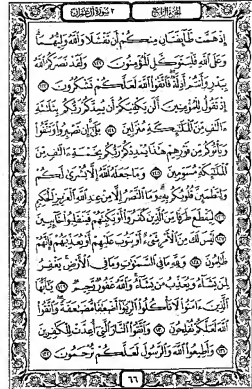 الجزء الرابع ٣ سورة آل عمران
إِذْ هَمَّت طَّآئِفَتَانِ مِنكُمْ أَن تَفْشَلَا وَٱللَّهُ وَلِيُّهُمَا
وَعَلَى ٱللَّهِ فَلْيَتَوَكَّلِ ٱلْمُؤْمِنُونَ ١٢٢ وَلَقَدْ نَصَرَكُمُ ٱللَّهُ
بِبَدْرٍ وَأَنتُمْ أَذِلَّةٌ فَٱتَّقُوا۟ ٱللَّهَ لَعَلَّكُمْ تَشْكُرُونَ ١٢٣
إِذْ تَقُولُ لِلْمُؤْمِنِينَ أَلَن يَكْفِيَكُمْ أَن يُمِدَّكُمْ رَبُّكُم بِثَلَٰثَةِ
ءَالَٰفٍ مِّنَ ٱلْمَلَٰٓئِكَةِ مُنزَلِينَ ١٢٤ بَلَىٰٓ إِن تَصْبِرُوا۟ وَتَتَّقُوا۟
وَيَأْتُوكُم مِّن فَوْرِهِمْ هَٰذَا يُمْدِدْكُمْ رَبُّكُم بِخَمْسَةِ ءَالَٰفٍ مِّنَ
ٱلْمَلَٰٓئِكَةِ مُسَوِّمِينَ ١٢٥ وَمَا جَعَلَهُ ٱللَّهُ إِلَّا بُشْرَىٰ لَكُمْ
وَلِتَطْمَئِنَّ قُلُوبُكُم بِهِۦ وَمَا ٱلنَّصْرُ إِلَّا مِنْ عِندِ ٱللَّهِ ٱلْعَزِيزِ ٱلْحَكِيمِ
١٢٦ لِيَقْطَعَ طَرَفًا مِّنَ ٱلَّذِينَ كَفَرُوٓا۟ أَوْ يَكْبِتَهُمْ فَيَنقَلِبُوا۟ خَآئِبِينَ
١٢٧ لَيْسَ لَكَ مِنَ ٱلْأَمْرِ شَىْءٌ أَوْ يَتُوبَ عَلَيْهِمْ أَوْ يُعَذِّبَهُمْ فَإِنَّهُمْ
ظَٰلِمُونَ ١٢٨ وَلِلَّهِ مَا فِى ٱلسَّمَٰوَٰتِ وَمَا فِى ٱلْأَرْضِ يَغْفِرُ
لِمَن يَشَآءُ وَيُعَذِّبُ مَن يَشَآءُ وَٱللَّهُ غَفُورٌ رَّحِيمٌ ١٢٩ يَٰٓأَيُّهَا
ٱلَّذِينَ ءَامَنُوا۟ لَا تَأْكُلُوا۟ ٱلرِّبَوٰٓا۟ أَضْعَٰفًا مُّضَٰعَفَةً وَٱتَّقُوا۟
ٱللَّهَ لَعَلَّكُمْ تُفْلِحُونَ ١٣٠ وَٱتَّقُوا۟ ٱلنَّارَ ٱلَّتِىٓ أُعِدَّتْ لِلْكَٰفِرِينَ
١٣١ وَأَطِيعُوا۟ ٱللَّهَ وَٱلرَّسُولَ لَعَلَّكُمْ تُرْحَمُونَ ١٣٢
٦٦